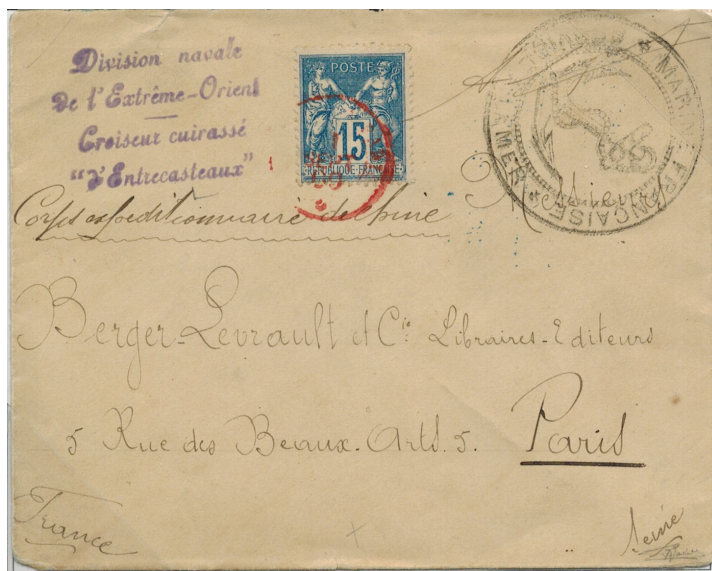 Division navale
de l'Extrême-Orient
Croiseur cuirassé
"D'Entrecasteaux"
POSTE
15
REPUBLIQUE FRANÇAISE
MARINE FRANÇAISE
Corps expéditionnaire de Chine
Messieurs
Berger-Levrault et Cie Libraires-Editeurs
5 Rue des Beaux-Arts. 5. Paris
France
Seine